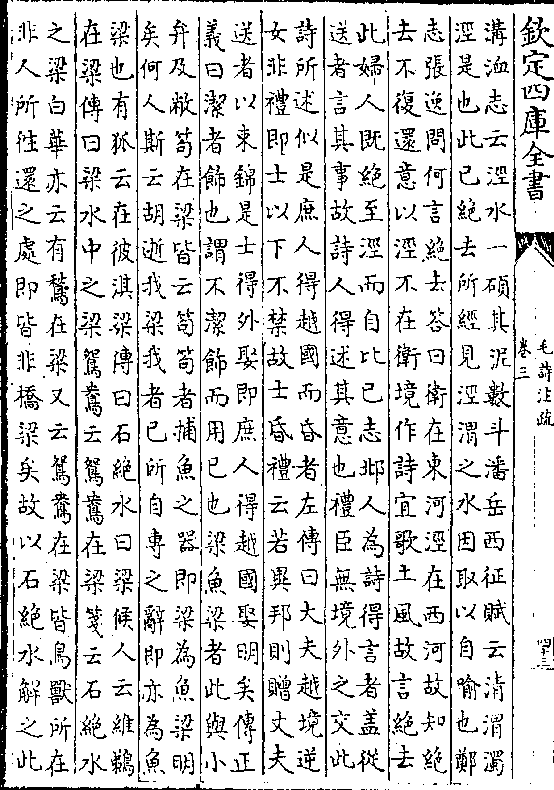 欽定四庫全書
毛詩注疏
卷三
溝洫志云涇水一碩其泥數斗潘岳西征賦云清渭濁
涇是也此已絶去所經見涇渭之水因取以自喻也鄭
志張逸問何言絶去答曰衛在東河涇在西河故知絶
去不復還意以涇不在衛境作詩宜歌土風故言絶去
此婦人既絶至涇而自比已志邶人為詩得言者盖從
送者言其事故詩人得述其意也禮臣無境外之交此
詩所述似是庶人得越國而昏者左傳曰大夫越境逆
女非禮即士以下不禁故士昏禮云若異邦則贈丈夫
送者以束錦是士得外娶即庶人得越國娶明矣傳正
義曰潔者飾也謂不潔飾而用已也梁魚梁者此與小
弁及敝笱在梁皆云笱笱者捕魚之器即梁為魚梁明
矣何人斯云胡逝我梁我者已所自專之辭即亦為魚
梁也有狐云在彼淇梁傳曰石絶水曰梁候人云維鵜
在梁傳曰梁水中之梁鴛鴦云鴛鴦在梁箋云石絶水
之梁白華亦云有鶖在梁又云鴛鴦在梁皆鳥獸所在
非人所往還之處即皆非橋梁矣故以石絶水解之此